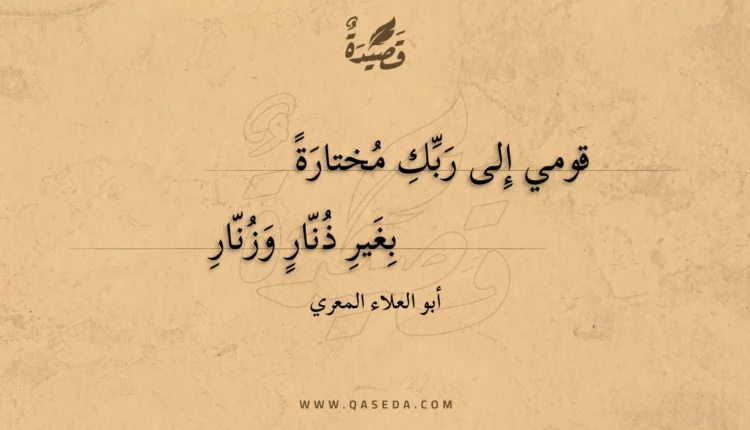 قَصِيدَةٌ
قومي إِلى رَبِّكِ مُختارَةً
بِغَيرِ ذُنّارٍ وَزُنّارِ
أبو العلاء المعري
WWW.QASEDA.COM